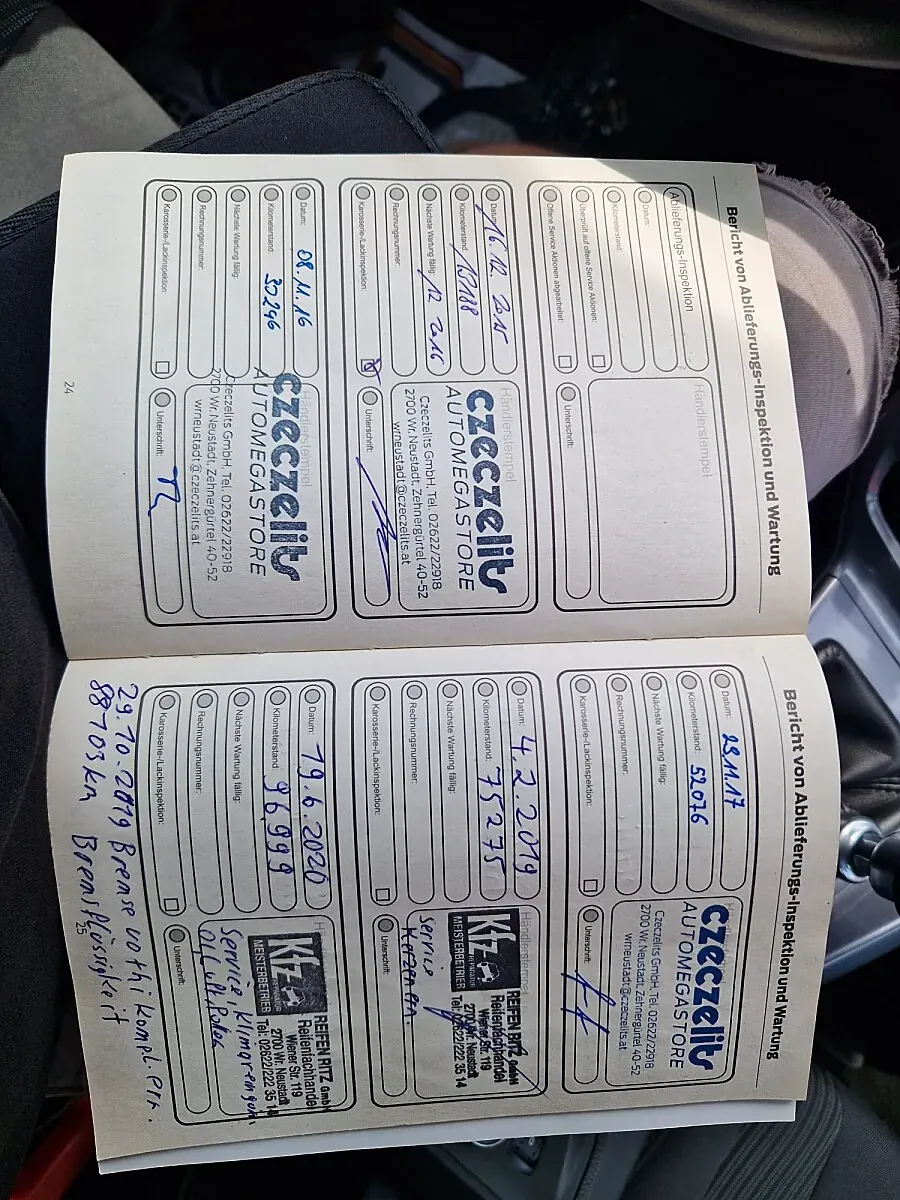 Bericht von Ablieferungs-Inspektion und Wartung
Ablieferungs-Inspektion
Datum:
Kilometerstand:
Überprüft auf offene Service Aktionen:
Offene Service Aktionen abgearbeitet:
Händlerstempel
Unterschrift:
Datum: 16.12.2015
Kilometerstand: 15188
Nächste Wartung fällig: 12 2016
Rechnungsnummer:
Karosserie-/Lackinspektion:
Händlerstempel
czeczelits
AUTOMEGASTORE
Czeczelits GmbH, Tel. 02622/22918
2700 Wr. Neustadt, Zehnergürtel 40-52
wrneustadt@czeczelits.at
Unterschrift:
Datum: 08.11.16
Kilometerstand: 30246
Nächste Wartung fällig:
Rechnungsnummer:
Karosserie-/Lackinspektion:
Händlerstempel
czeczelits
AUTOMEGASTORE
Czeczelits GmbH, Tel. 02622/22918
2700 Wr. Neustadt, Zehnergürtel 40-52
wrneustadt@czeczelits.at
Unterschrift:
24
Bericht von Ablieferungs-Inspektion und Wartung
Datum: 23.11.17
Kilometerstand: 52076
Nächste Wartung fällig:
Rechnungsnummer:
Karosserie-/Lackinspektion:
Händlerstempel
czeczelits
AUTOMEGASTORE
Czeczelits GmbH, Tel. 02622/22918
2700 Wr. Neustadt, Zehnergürtel 40-52
wrneustadt@czeczelits.at
Unterschrift:
Datum: 4.2.2019
Kilometerstand: 75275
Nächste Wartung fällig:
Rechnungsnummer:
Karosserie-/Lackinspektion:
Händlerstempel
Kfz
MEISTERBETRIEB
REIFEN RITZ GmbH
Reifenfachhandel
Wiener Str. 119
2700 Wr. Neustadt
Tel. 02622/222 35 14
Service
Unterschrift:
Datum: 19.6.2020
Kilometerstand: 96.999
Nächste Wartung fällig:
Rechnungsnummer:
Karosserie-/Lackinspektion:
Kfz
MEISTERBETRIEB
REIFEN RITZ GmbH
Reifenfachhandel
Wiener Str. 119
2700 Wr. Neustadt
Tel. 02622/222 35 14
Service,
Unterschrift:
29.10.2019 Bremse vo + hi kompl.
88703km Bremsflüssigkeit
25